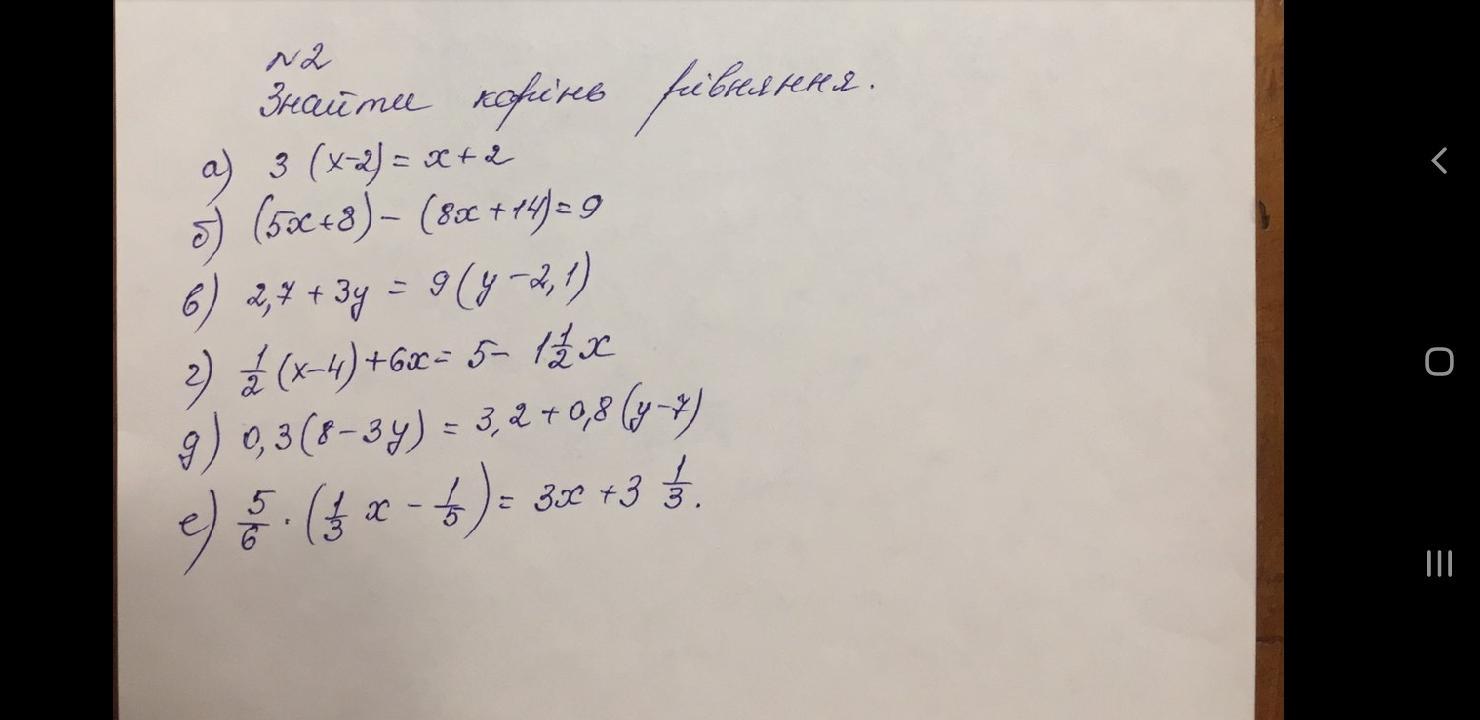 №2
Знайти корінь рівняння.
а) 3 (x-2) = x + 2
б) (5x+8) - (8x+14) = 9
в) 2,7 + 3y = 9 (y - 2,1)
г) 1/2 (x-4) + 6x = 5 - 1 1/2 x
д) 0,3 (8 - 3y) = 3,2 + 0,8 (y-7)
е) 5/6 · (1/3 x - 1/5) = 3x + 3 1/3.